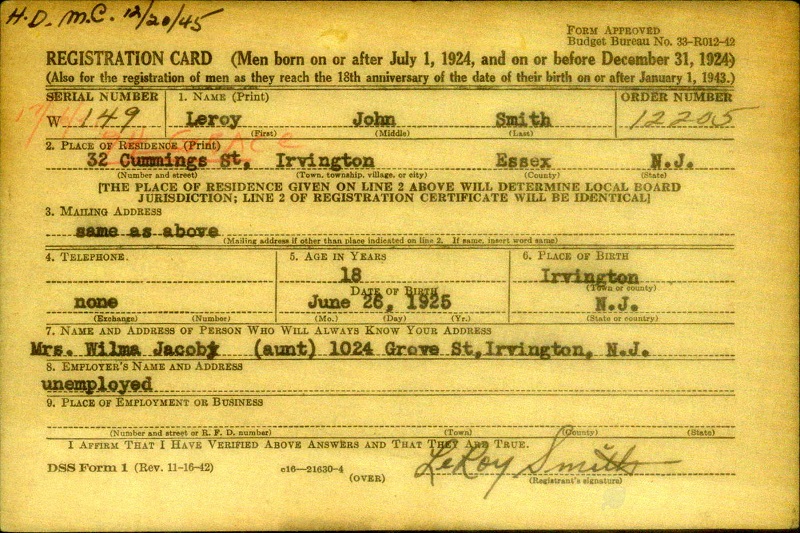 H.D. M.C. 12/20/45
FORM APPROVED
Budget Bureau No. 33-R012-42
REGISTRATION CARD (Men born on or after July 1, 1924, and on or before December 31, 1924)
(Also for the registration of men as they reach the 18th anniversary of the date of their birth on or after January 1, 1943.)
SERIAL NUMBER 1. NAME (Print) ORDER NUMBER
W 149 Leroy John Smith 12205
(First) (Middle) (Last)
2. PLACE OF RESIDENCE (Print)
32 Cummings St, Irvington Essex N.J.
(Number and street) (Town, township, village, or city) (County) (State)
[THE PLACE OF RESIDENCE GIVEN ON LINE 2 ABOVE WILL DETERMINE LOCAL BOARD
JURISDICTION; LINE 2 OF REGISTRATION CERTIFICATE WILL BE IDENTICAL]
3. MAILING ADDRESS
same as above
(Mailing address if other than place indicated on line 2. If same, insert word same)
4. TELEPHONE. 5. AGE IN YEARS 6. PLACE OF BIRTH
18 Irvington
(Town or county)
DATE OF BIRTH
none June 26, 1925 N.J.
(Exchange) (Number) (Mo.) (Day) (Yr.) (State or country)
7. NAME AND ADDRESS OF PERSON WHO WILL ALWAYS KNOW YOUR ADDRESS
Mrs. Wilma Jacoby (aunt) 1024 Grove St, Irvington, N.J.
8. EMPLOYER'S NAME AND ADDRESS
unemployed
9. PLACE OF EMPLOYMENT OR BUSINESS
(Number and street or R. F. D. number) (Town) (County) (State)
I AFFIRM THAT I HAVE VERIFIED ABOVE ANSWERS AND THAT THEY ARE TRUE.
DSS Form 1 (Rev. 11-16-42) c16—21630-4 LeRoy Smith
(OVER) (Registrant's signature)